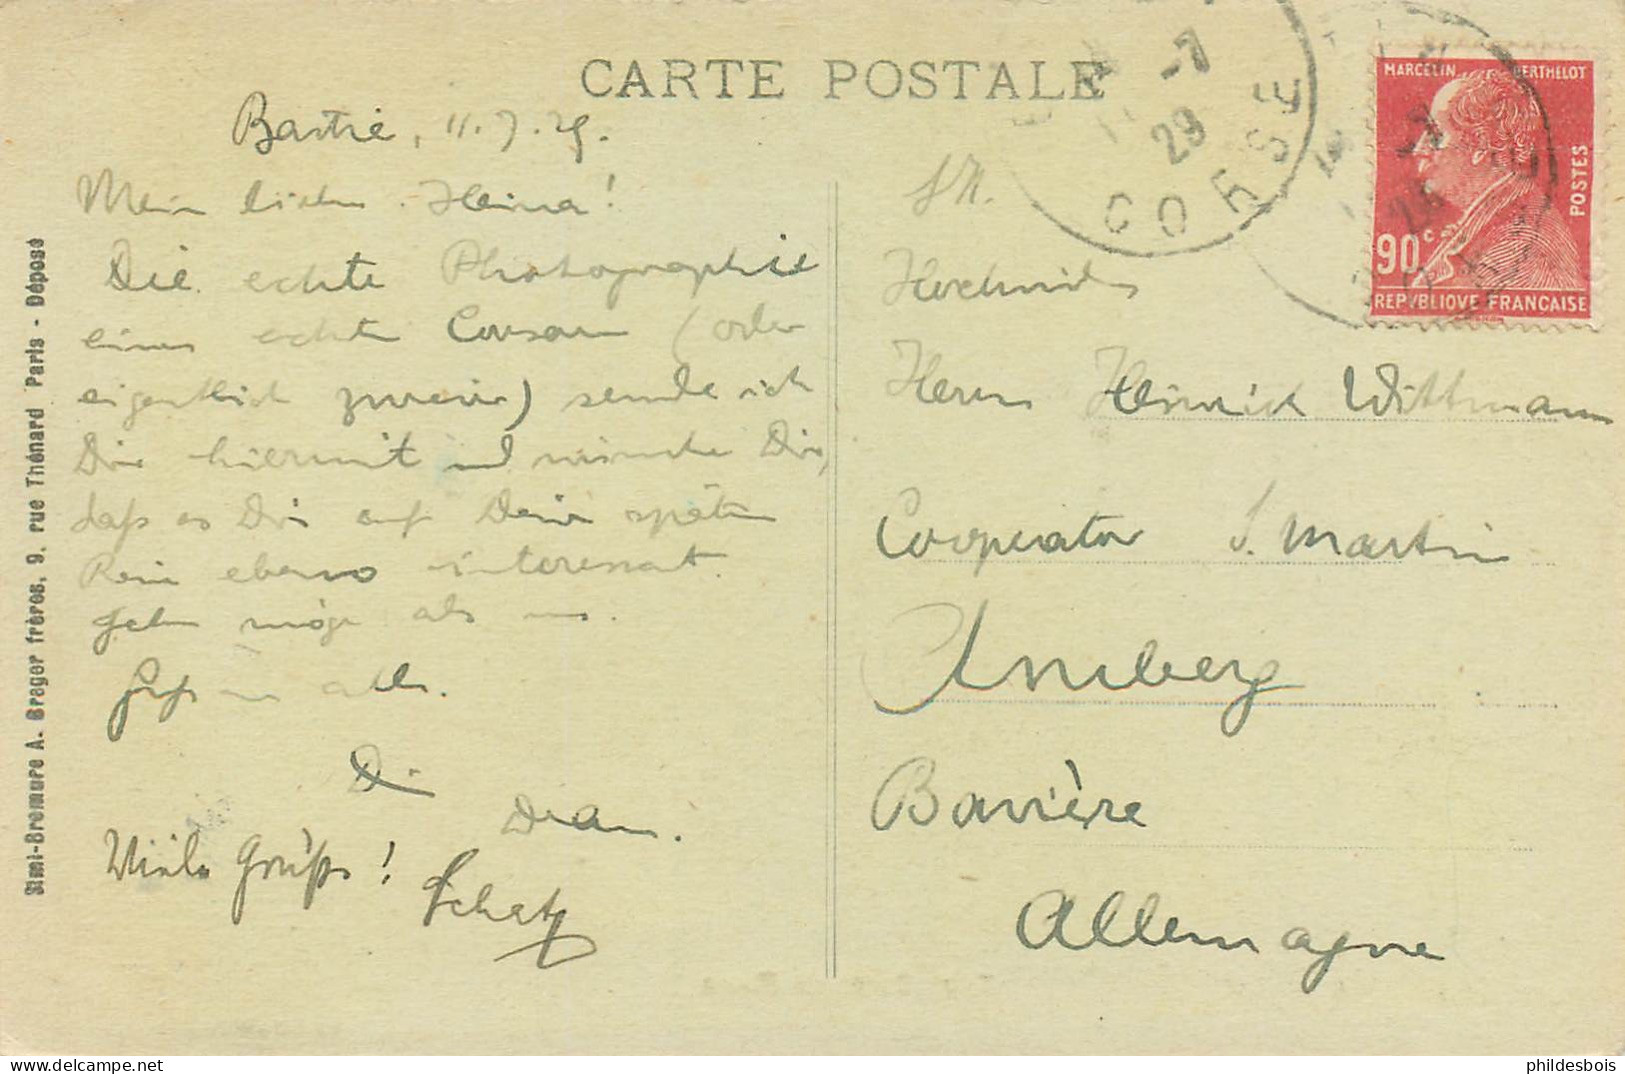 CARTE POSTALE
Bastia, 11.7.29.
Mein lieber Heina!
Die echte Photographie
eines echten Corsen (oder
eigentlich zweier) sende ich
Dir hiermit und wünsche Dir,
daß es Dir auf Deiner späteren
Reise ebenso interessant
gehen möge als uns.
Grüße an alle.
Dein
Viele Grüße!
Schatz
Simi-Bromure A. Breger frères, 9, rue Thénard Paris - Déposé
-7
29
CORSE
MARCELIN BERTHELOT
POSTES
90c
REPVBLIQVE FRANCAISE
Hochwürden
Herrn Heinrich Wittmann
Cooperator S. Martin
Amberg
Bavière
Allemagne
phildesbois